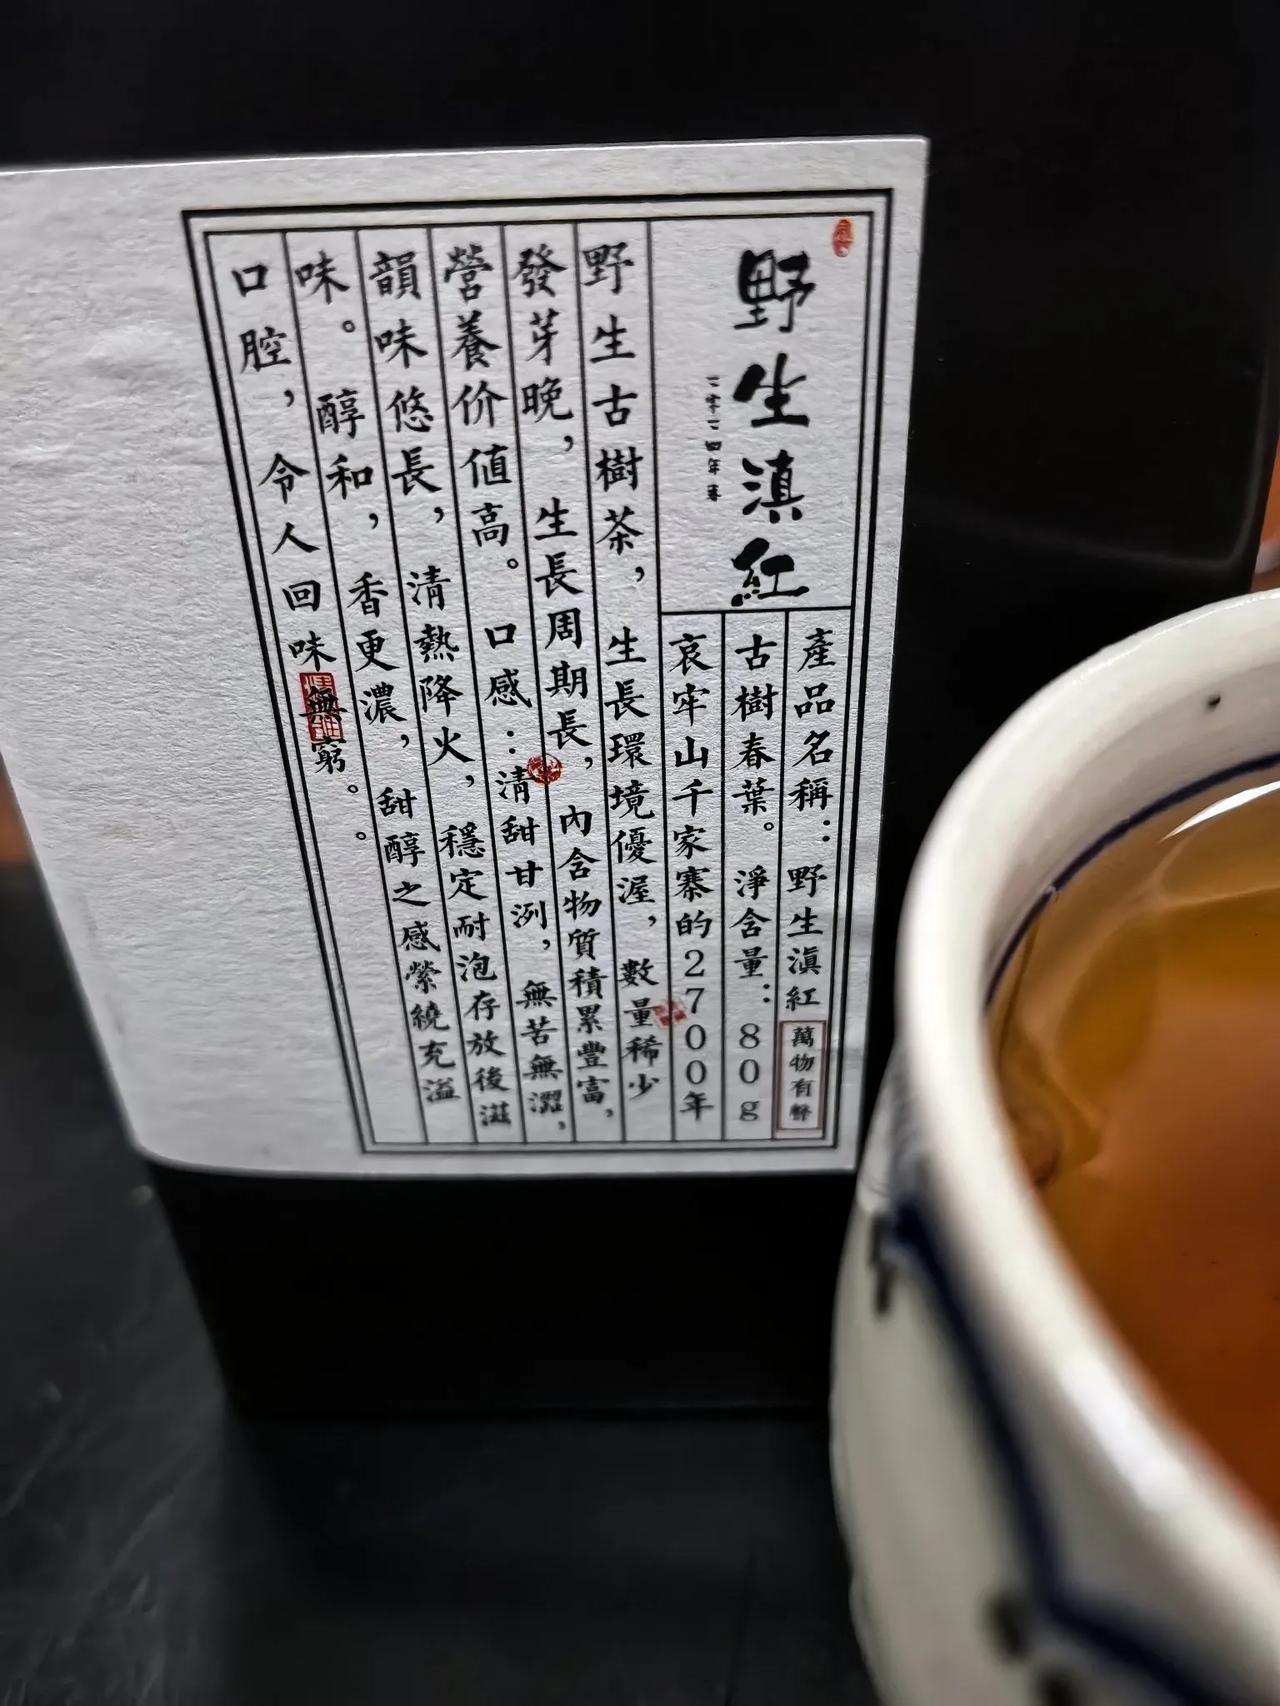 野生滇紅
二零二四年春
產品名稱：野生滇紅
萬物有
古樹春葉。淨含量：80g
哀牢山千家寨的2700年
野生古樹茶，生長環境優渥，數量稀少
發芽晚，生長周期長，內含物質積累豐富，
營養价值高。口感：清甜甘洌，無苦無澀，
韻味悠長，清熱降火，穩定耐泡存放後滋
味。醇和，香更濃，甜醇之感縈繞充溢
口腔，令人回味無窮。。